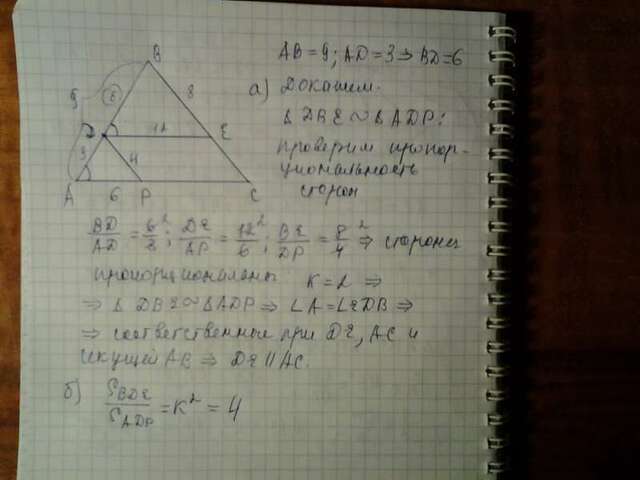 AB = 9; AD = 3 ⇒ BD = 6
а) Докажем:
Δ DBE ~ Δ ADP:
проверим пропор-
циональность
сторон
B
9
6
8
D
12
E
3
4
A
6
P
C
BD/AD = 6/3 2; DE/AP = 12/6 2; BE/DP = 8/4 2 ⇒ стороны
пропорциональны K = 2 ⇒
⇒ Δ DBE ~ Δ ADP ⇒ ∠A = ∠EDB ⇒
⇒ соответственные при DE, AC и
секущей AB ⇒ DE || AC.
б) S BDE / S ADP = K² = 4